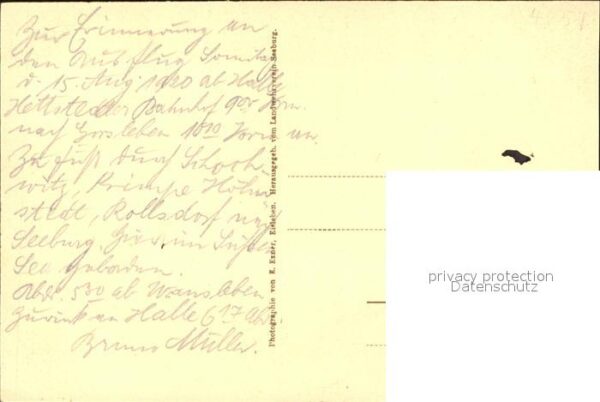 Zur Erinnerung an
den Ausflug Sonntag
d. 15. Aug. 1920 ab Halle
Hettstedter Bahnhof 9 Vorm.
nach Gorsleben 10 10 Vorm an.
Zu fuß durch Schoch-
witz, Krimpe, Höhn-
stedt, Rollsdorf nach
Seeburg. Hier im Süßen
See gebadet.
Abds. 5 30 ab Wansleben
zurück an Halle 6 17 Abds.
Bruno Müller.
Photographie von E. Exner, Eisleben. Herausgegeb. vom Landwehrverein Seeburg.
privacy protection
Datenschutz